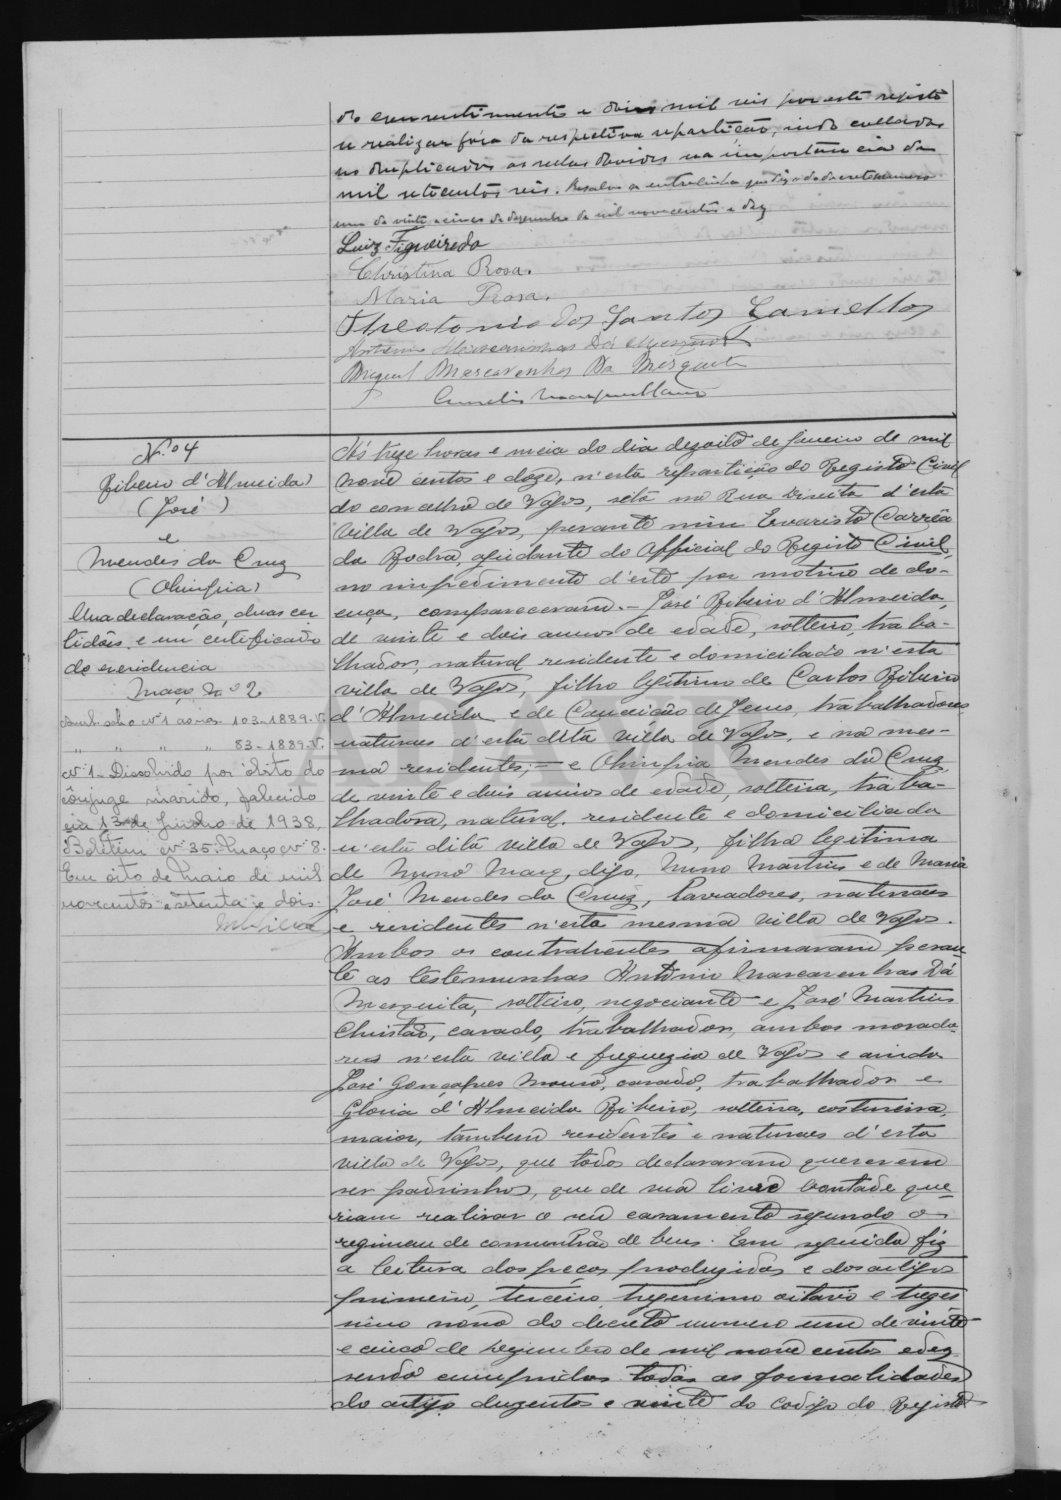 do consentimento e dois mil reis por este registo
se realizar fóra da respectiva repartição, indo collados
nos duplicados os sellos devidos na importancia de
mil setecentos reis. Resalvo a entrelinha que diz do decreto numero
um de vinte e cinco de dezembro de mil novecentos e dez
Luiz Figueiredo
Christina Rosa.
Maria Rosa.
Theotonio dos Santos Gamellas
Antonio Mascarenhas Dá Mesquita
Miguel Mascarenhas Da Mesquita
N.º 4
Ribeiro d'Almeida
(José)
e
Mendes da Cruz
(Olimpia)
Uma declaração, duas cer
tidões e um certificado
de residencia
Maço Nº 2
nº 1 103-1889-V.
" " " " 83-1889-V.
nº 1 - Dissolvido por óbito do
cônjuge marido, falecido
em 13 de Junho de 1938.
Boletim nº 35. Maço nº 8.
Em oito de Maio de mil
novecentos e setenta e dois.
MSilva
Ás treze horas e meia do dia dezoito de Janeiro de mil
nove centos e doze, n'esta repartição do Registo Civil
do concelho de Vagos, sita na Rua Direita d'esta
villa de Vagos, perante mim Evaristo Corrêa
da Rocha, ajudante do Official do Registo Civil,
no impedimento d'este por motivo de do-
ença, compareceram. - José Ribeiro d'Almeida,
de vinte e dois annos de edade, solteiro, traba-
lhador, natural residente e domiciliado n'esta
villa de Vagos, filho legitimo de Carlos Ribeiro
d'Almeida e de Conceição de Jesus, trabalhadores
naturaes d'esta dita villa de Vagos, e na mes-
ma residentes; - e Olimpia Mendes da Cruz,
de vinte e dois annos de edade, solteira, traba-
lhadora, natural, residente e domiciliada
n'esta dita villa de Vagos, filha legitima
de Nuno Marq, digo, Nuno Martins e de Maria
José Mendes da Cruz, lavradores, naturaes
e residentes n'esta mesma villa de Vagos.
Ambos os contrahentes afirmaram peran-
te as testemunhas Antonio Mascarenhas Dá
Mesquita, solteiro, negociante e José Martins
Christão, casado, trabalhador, ambos morado-
res n'esta villa e freguezia de Vagos e ainda
José Gonçalves Mouro, casado, trabalhador e
Gloria d'Almeida Ribeiro, solteira, costureira,
maior, tambem residentes e naturaes d'esta
villa de Vagos, que todos declararam quererem
ser padrinhos, que de sua livre vontade que-
riam realisar o seu casamento segundo o
regimen de comunhão de bens. Em seguida fiz
a leitura das peças produzidas e dos artigos
primeiro, terceiro, trigesimo oitavo e triges
simo nono do decreto numero um de vinte
e cinco de Dezembro de mil nove centos e dez
sendo cumpridas todas as formalidades
do artigo duzentos e vinte do Codigo do Registo
ADAVR